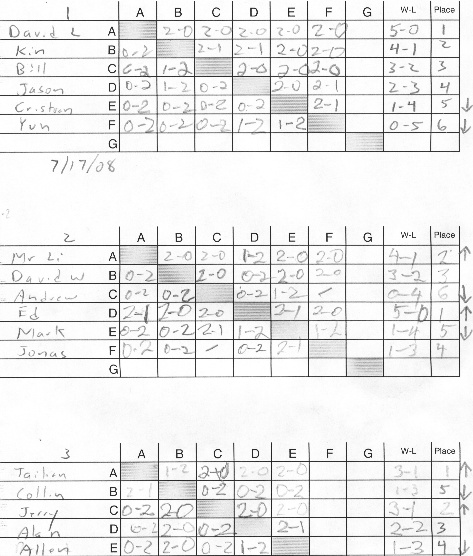 1 A B C D E F G W-L Place
David L A 2-0 2-0 2-0 2-0 2-0 5-0 1
Kin B 0-2 2-1 2-1 2-0 2-0 4-1 2
Bill C 0-2 1-2 2-0 2-0 2-0 3-2 3
Jason D 0-2 1-2 0-2 2-0 2-1 2-3 4
E 0-2 0-2 0-2 0-2 2-1 1-4 5 ↓
Yun F 0-2 0-2 0-2 1-2 1-2 0-5 6 ↓
G
7/17/08
2 A B C D E F G W-L Place
Mr Li A 2-0 2-0 1-2 2-0 2-0 4-1 2 ↑
David W B 0-2 2-0 0-2 2-0 2-0 3-2 3
Andrew C 0-2 0-2 0-2 1-2 / 0-4 6 ↓
Ed D 2-1 2-0 2-0 2-1 2-0 5-0 1 ↑
Mark E 0-2 0-2 2-1 1-2 1-2 1-4 5 ↓
Jonas F 0-2 0-2 / 0-2 2-1 1-3 4
G
3 A B C D E F G W-L Place
A 1-2 2-0 2-0 2-0 3-1 1 ↑
Collin B 2-1 0-2 0-2 0-2 1-3 5 ↓
Jerry C 0-2 2-0 2-0 2-0 3-1 2 ↑
Alan D 0-2 2-0 0-2 2-1 2-2 3
Allen E 0-2 2-0 0-2 1-2 1-3 4